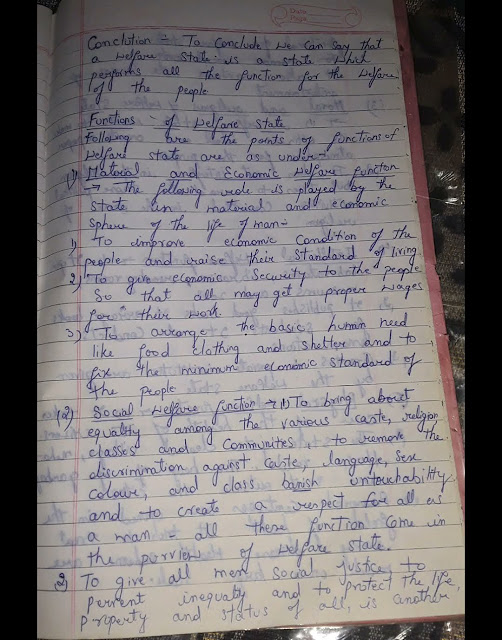 Date
Page
Conclution - To Conclude we can say that
a welfare state is a state which
performs all the function for the welfare
of the people
Functions of welfare state
Following are the points of functions of
welfare state are as under-
1) Material and Economic welfare function
→ The following role is played by the
state in material and economic
sphere of the life of man-
1) To improve economic Condition of the
people and raise their standard of living
2) To give economic Security to the people
So that all may get proper wages
for their work.
3) To arrange the basic human need
like food clothing and shelter and to
fix the minimum economic standard of
the people
(2) Social welfare function → (1) To bring about
equality among the various caste, religion
classes and Communites, to remove the
discrimination against Caste, language, Sex
Colour, and class banish untouchability
and to create a respect for all as
a man - all these function Come in
the purview of welfare state.
2) To give all men Social justice to
pervent inequaty and to protect the life,
property and status of all, is another